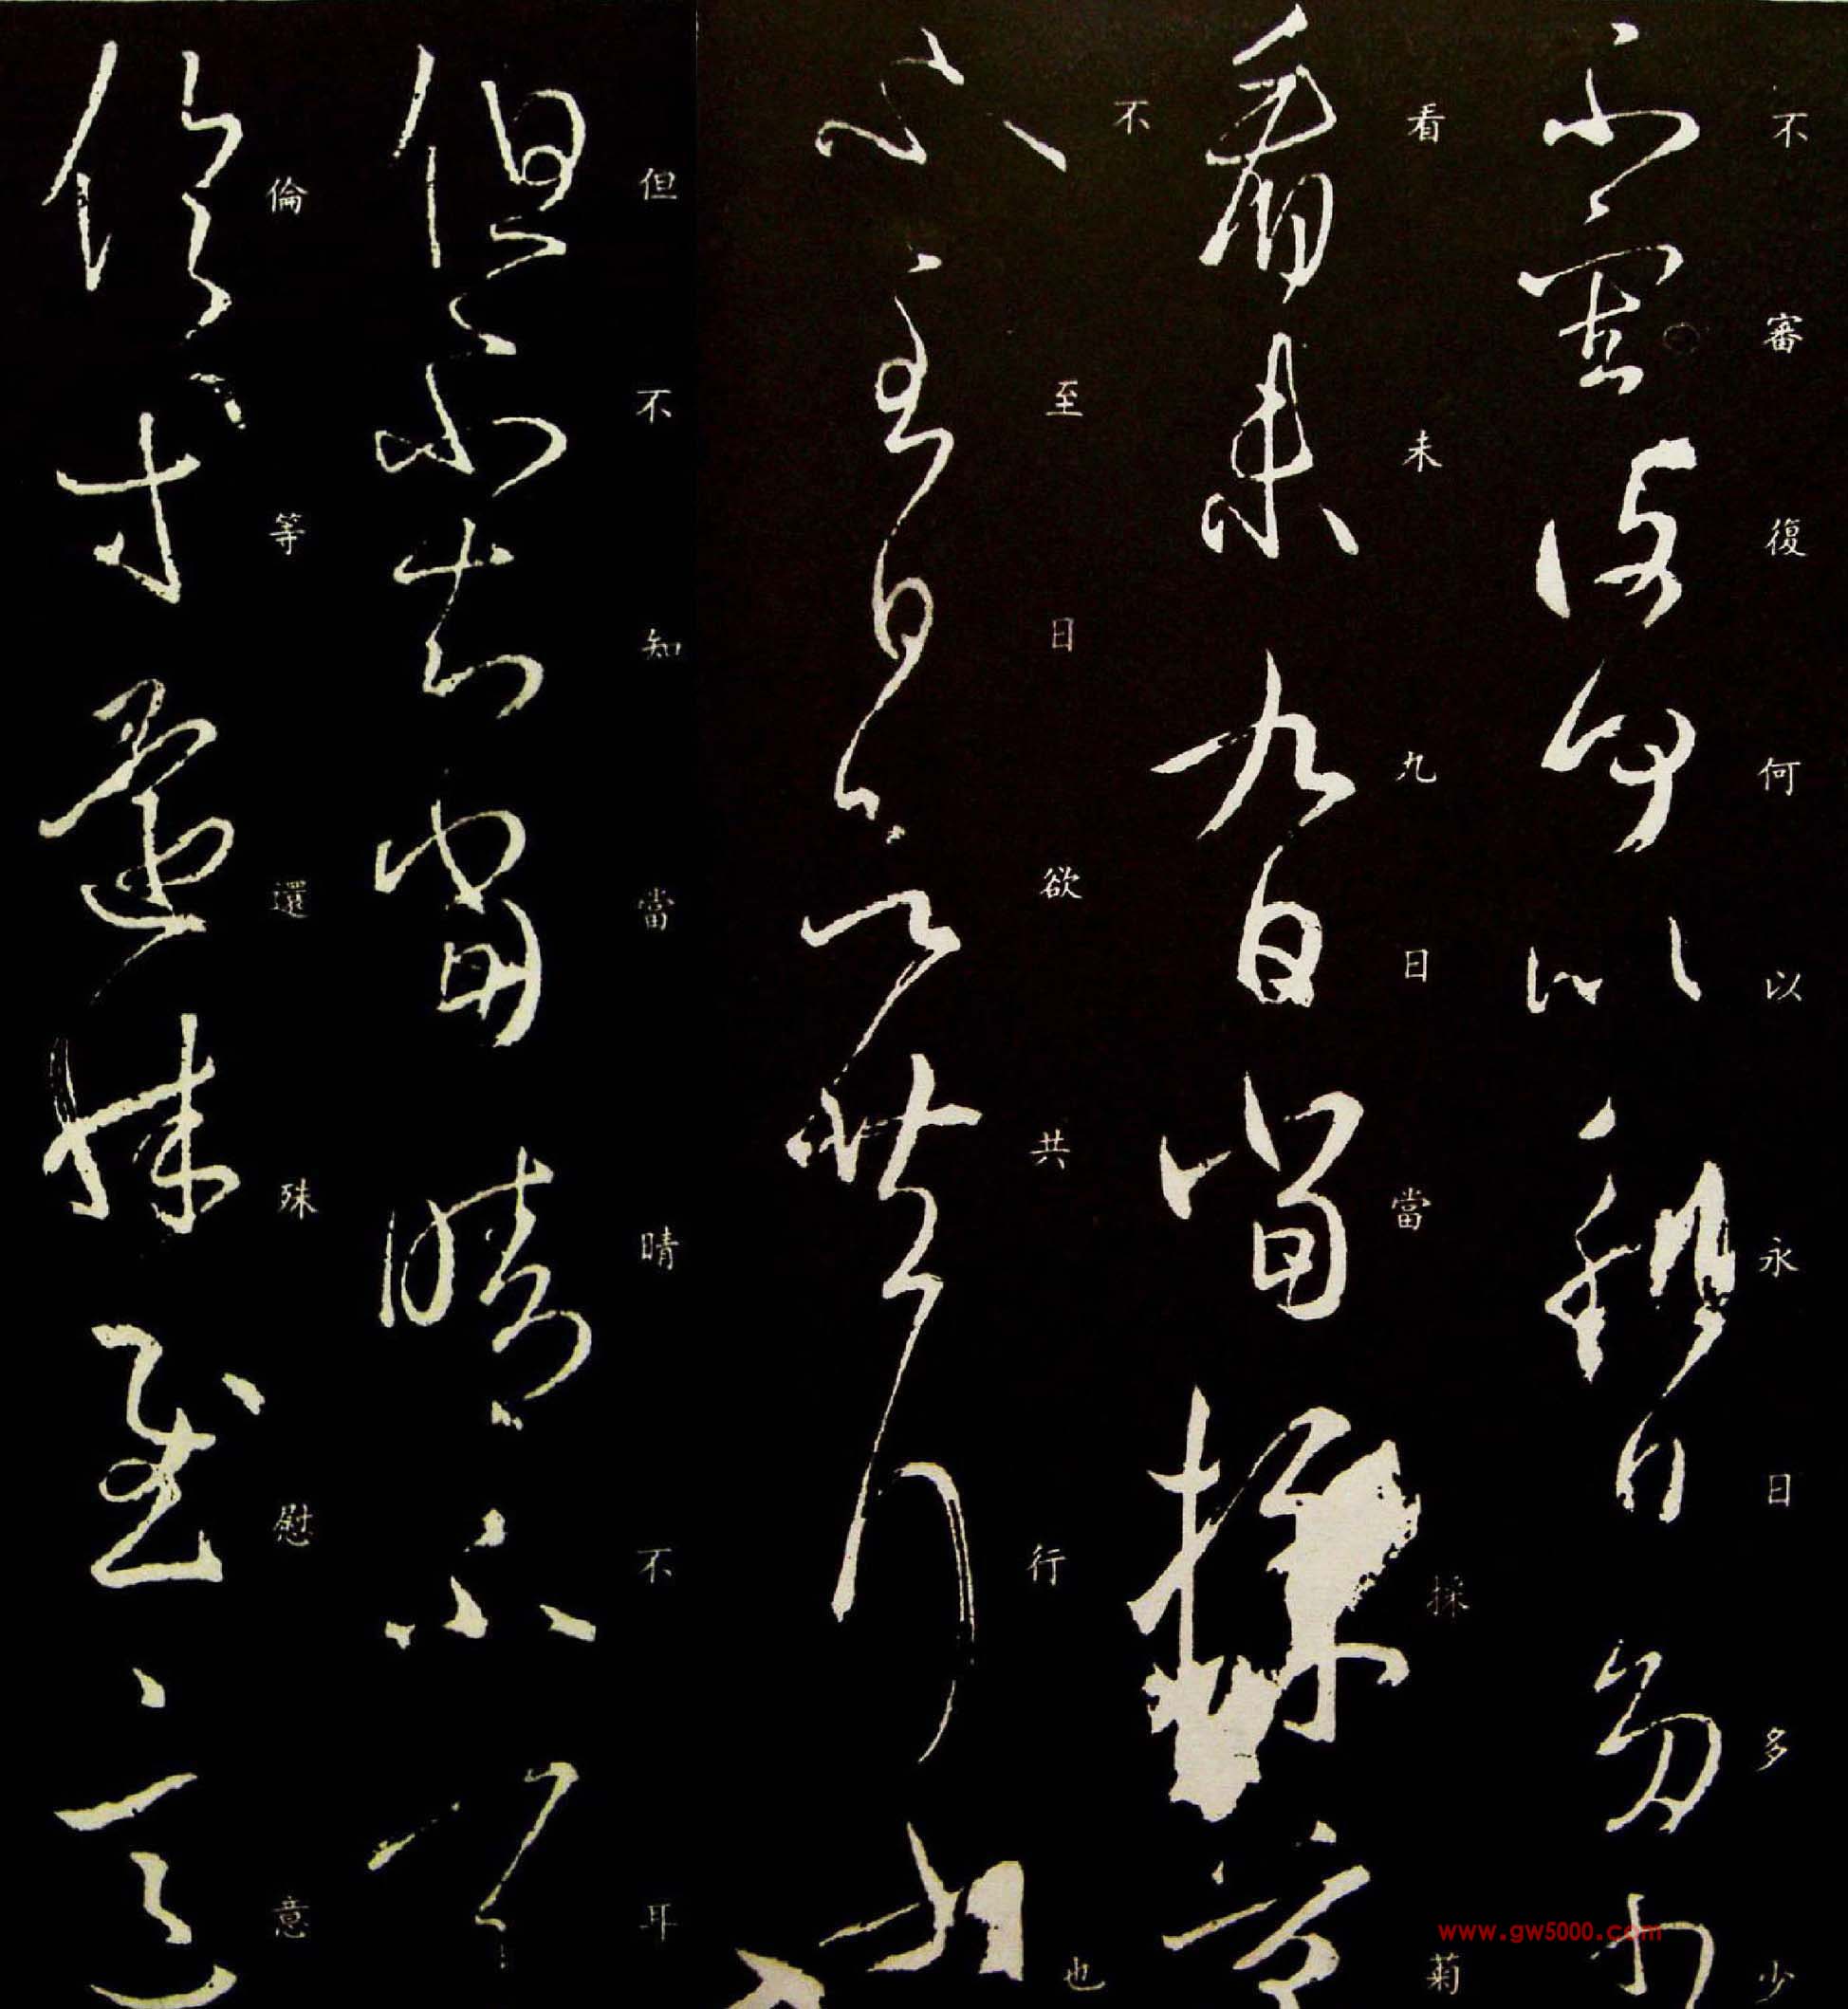 不審復何以永日多少
看未九日當採菊
不至日欲共行也
但不知當晴不耳
倫等還殊慰意
www.gw5000.com